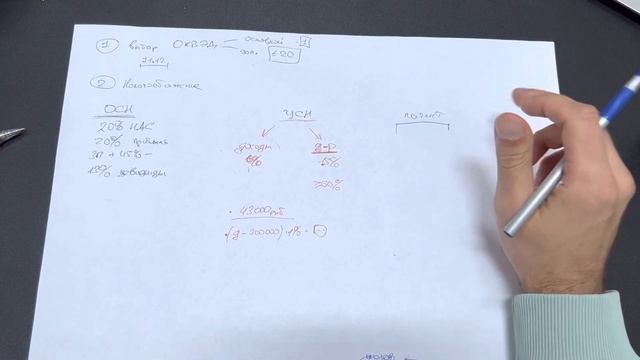 ① выбор ОКВЭДа основной - 1
доп. ≤20
71.12
② Налогообложение
ОСН
20% НДС
20% прибыль
ЗП + 45% -
УСН
доходы
6%
Д-Р
15%
≈60%
• 43000 руб
•(Д-300000)•1% =
патент